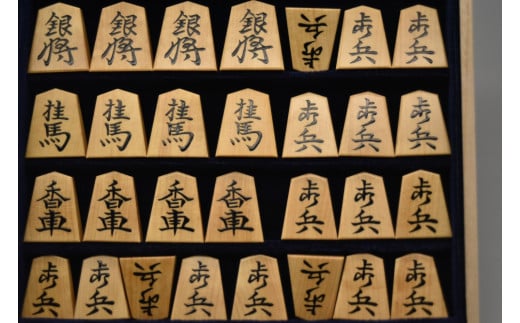 銀将 銀将 銀将 銀将 歩兵 歩兵 歩兵
桂馬 桂馬 桂馬 桂馬 歩兵 歩兵 歩兵
香車 香車 香車 香車 歩兵 歩兵 歩兵
歩兵 歩兵 歩兵 歩兵 歩兵 歩兵 歩兵 歩兵